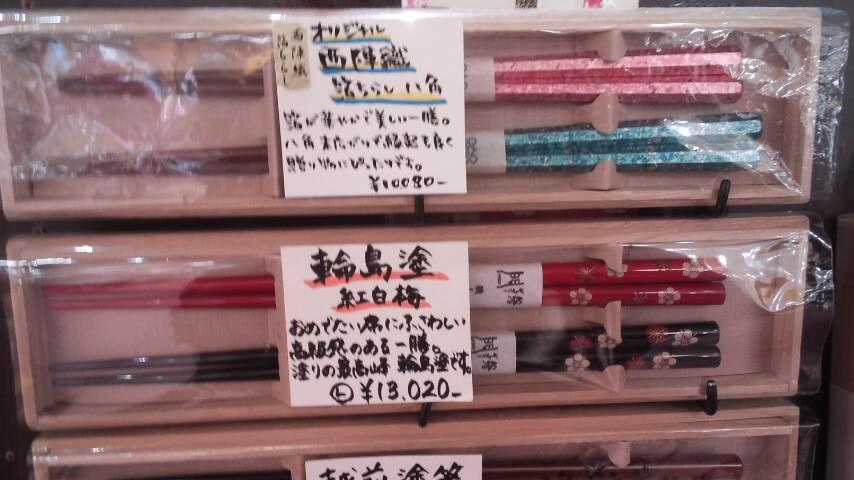 西陣織
箔ちらし
オリジナル
西陣織
箔ちらし八角
箔が華やかで美しい一膳。
八角末広がりで縁起も良く
贈り物にぴったりです。
¥10080-
輪島塗
紅白梅
おめでたい席にふさわしい
高級感のある一膳。
塗りの最高峰 輪島塗です。
¥13,020-
越前塗箸